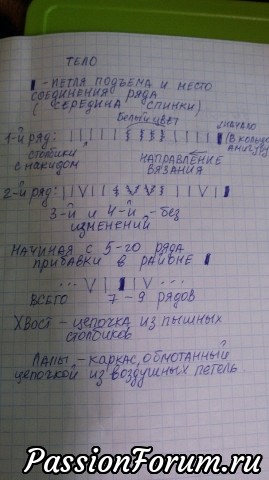 ТЕЛО
- ПЕТЛЯ ПОДЪЕМА И МЕСТО
СОЕДИНЕНИЯ РЯДА
(СЕРЕДИНА СПИНКИ)
БЕЛЫЙ ЦВЕТ
НАЧАЛО
1-й РЯД:
(В КОЛЬЦО
АМИГУРУМИ)
СТОЛБИКИ
С НАКИДОМ
НАПРАВЛЕНИЕ
ВЯЗАНИЯ
2-й РЯД:
3-й И 4-й - БЕЗ
ИЗМЕНЕНИЙ
НАЧИНАЯ С 5-ГО РЯДА
ПРИБАВКИ В РАЙОНЕ
... V | | V ...
ВСЕГО 7-9 РЯДОВ
ХВОСТ - ЦЕПОЧКА ИЗ ПЫШНЫХ
СТОЛБИКОВ
ЛАПЫ - КАРКАС, ОБМОТАННЫЙ
ЦЕПОЧКОЙ ИЗ ВОЗДУШНЫХ ПЕТЕЛЬ
PassionForum.ru